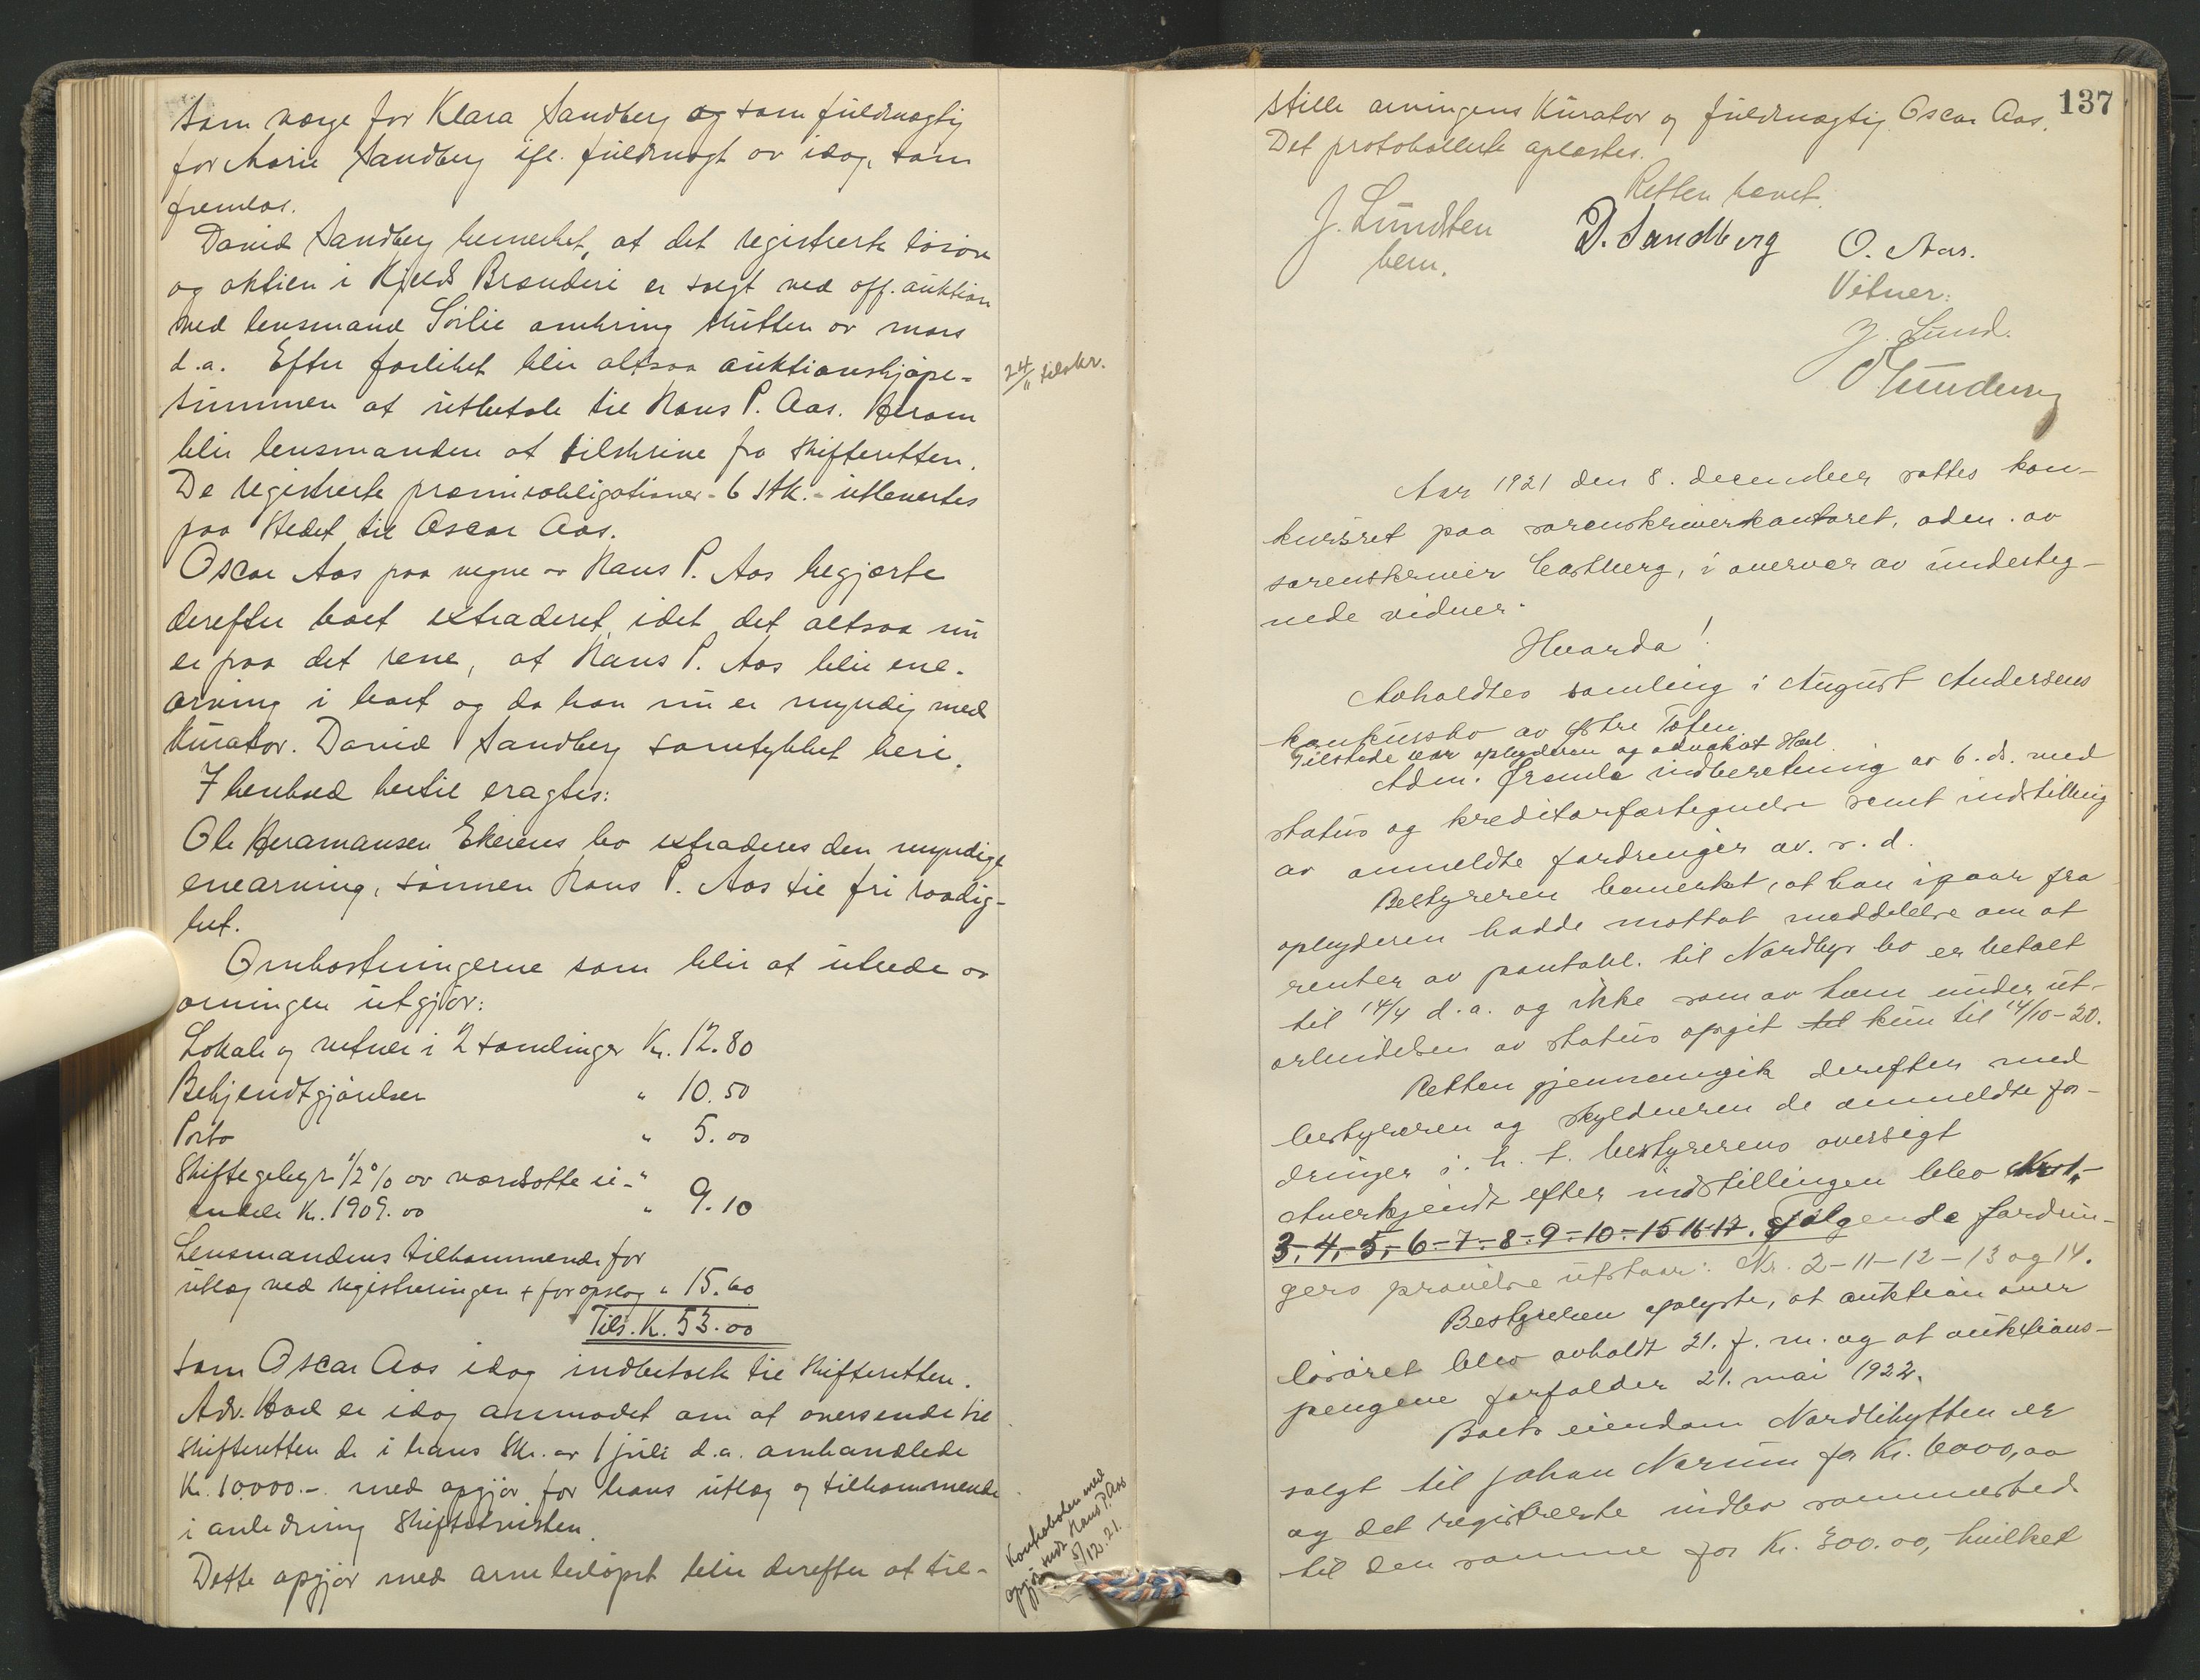 som værge for Klara Sandberg og som fuldmægtig
for Marie Sandberg ifl. fuldmagt av idag, som
fremlas.
David Sandberg bemerket, at det registrerte løsøre
og aktien i Kjelds Brænderi er solgt ved off. auktion
ved lensmand Sørlie omkring slutten av mars
d.a. Efter forliket blir altsaa auktionskjøpe-
summen at utbetale til Hans P. Aas. Herom
blir lensmanden at tilskrive fra skifteretten.
De registrerte præmieobligationer - 6 stk. - utlevertes
paa stedet til Oscar Aas.
Oscar Aas paa vegne av Hans P. Aas begjærte
derefter boet extraderet, idet det altsaa nu
er paa det rene, at Hans P. Aas blir ene-
arving i boet og da han nu er myndig med
kurator. David Sandberg samtykket heri.
I henhold hertil eragtes:
Ole Hermansen Ekerens bo extraderes den myndige
enearving, sønnen Hans P. Aas til fri raadig-
het.
Omkostningerne som blir at utrede av
arvingen utgjør:
Lokale og vitner i 2 samlinger Kr. 12.80
Bekjendtgjørelser " 10.50
Porto " 5.00
Skiftegebyr 1/2 % av værdsatte ei-"
endele Kr. 1909.00 " 9.10
Lensmandens tilkommende for
utlæg ved registreringen + for opslag " 15.60
Tils. K. 53.00
som Oscar Aas idag indbetalte til skifteretten.
Adv. Hoel er idag anmodet om at oversende til
skifteretten de i hans skr. av 1 juli d.a. omhandlede
Kr. 10000.- med opgjør for hans utlæg og tilkommende
i anledning skiftetvisten.
Dette opgjør med arvebeløpet blir derefter at til-
24/11 tilskr.
Kontraboken med
opgjør sendt Hans P. Aas
5/12.21.
137
stille arvingens kurator og fuldmægtig Oscar Aas.
Det protokollerte oplæstes.
Retten hævet.
J. Lundsten
bem.
D. Sandberg O. Aas.
Vitner:
J. Lund.
Aar 1921 den 8. december sattes kon-
kursret paa sorenskriverkontoret, adm. av
sorenskriver Castberg, i overvær av underteg-
nede vidner.
Hvorda!
Avholdtes samling i August Andersens
konkursbo av Østre Toten.
Tilstede var opbyderen og advokat Hoel.
Adm. fremla indberetning av 6. ds. med
status og kreditorfortegnelse samt indstilling
av anmeldte fordringer av. s. d.
Bestyreren bemerket, at han igaar fra
opbyderen hadde mottat meddelelse om at
renter av pantobl. til Nordbys bo er betalt
til 14/4 d.a. og ikke som av ham under ut-
arbeidelsen av status opgit til kun til 14/10-20.
Retten gjennemgik derefter med
bestyreren og skyldneren de anmeldte for-
dringer i. h. t. bestyrerens oversigt
Anerkjendt efter indstillingen blev Nr. 1,-
3,-4,-5,-6-7-8-9-10-15 16-17. Følgende fordrin-
gers prøvelse utstaar: Nr. 2-11-12-13 og 14.
Bestyreren oplyste, at auktion over
løsøret blev avholdt 21. f. m. og at auktions-
pengene forfalder 21. mai 1922.
Boets eiendom Nordlihytten er
solgt til Johan Narum for Kr. 6000,00
og det registrerte indbo sammesteds
til den samme for Kr. 300.00, hvilket